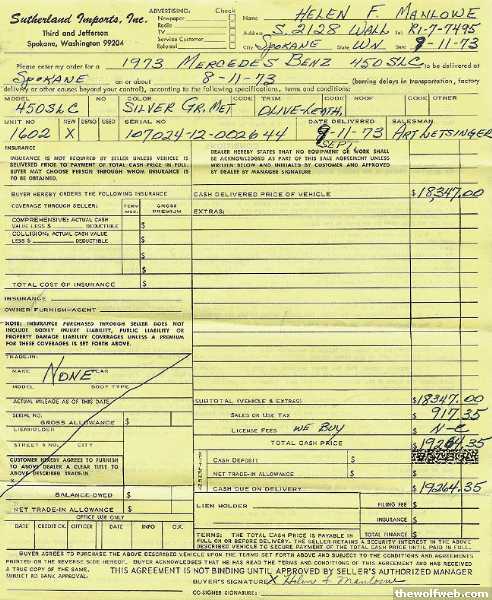 Sutherland Imports, Inc.
Third and Jefferson
Spokane, Washington 99204
ADVERTISING: Check
Newspaper
Radio
TV
Service Customer
Referral
Name HELEN F. MANLOWE
Address S. 2128 WALL Tel. R1-7-7495
City SPOKANE State WN 9-11-73
Please enter my order for a 1973 MERCEDES BENZ 450SLC to be delivered at
SPOKANE on or about 8-11-73 (barring delays in transportation, factory
delivery or other causes beyond your control), according to the following specifications, terms and conditions:
MODEL NO COLOR CODE TRIM CODE ROOF CODE OTHER
450SLC SILVER GR. MET OLIVE-LEATH.
UNIT NO NEW DEMO USED SERIAL NO DATE DELIVERED SALESMAN
1602 X 107024-12-002644 9-11-73 ART LETSINGER
SEPT
INSURANCE
INSURANCE IS NOT REQUIRED BY SELLER UNLESS VEHICLE IS
DELIVERED PRIOR TO PAYMENT OF TOTAL CASH PRICE IN FULL
BUYER MAY CHOOSE PERSON THROUGH WHOM INSURANCE IS
TO BE OBTAINED.
DEALER HEREBY STATES THAT NO EQUIPMENT OR WORK SHALL
BE ACKNOWLEDGED AS PART OF THIS SALE AGREEMENT UNLESS
WRITTEN BELOW AND INITIALED BY CUSTOMER AND APPROVED
BY DEALER BY MANAGER SIGNATURE
BUYER HEREBY ORDERS THE FOLLOWING INSURANCE
CASH DELIVERED PRICE OF VEHICLE $ 18,347.00
COVERAGE THROUGH SELLER: TERM MOS. GROSS PREMIUM
EXTRAS:
COMPREHENSIVE: ACTUAL CASH
VALUE LESS $ DEDUCTIBLE $
COLLISION: ACTUAL CASH VALUE
LESS $ DEDUCTIBLE $
$
TOTAL COST OF INSURANCE $
INSURANCE
OWNER FURNISH-AGENT
NOTE: INSURANCE PURCHASED THROUGH SELLER DOES NOT
INCLUDE BODILY INJURY LIABILITY, PUBLIC LIABILITY OR
PROPERTY DAMAGE LIABILITY COVERAGES UNLESS A PREMIUM
FOR THESE COVERAGES IS SET FORTH ABOVE.
TRADE-IN:
MAKE NONE YEAR
MODEL BODY TYPE
ACTUAL MILEAGE AS OF THIS DATE
SUBTOTAL (VEHICLE & EXTRAS) $ 18347.00
SERIAL NO.
GROSS ALLOWANCE $
SALES OR USE TAX 917.35
LIENHOLDER
LICENSE FEES WE BUY N-C
STREET & NO. CITY
TOTAL CASH PRICE $ 19264.35
CUSTOMER HEREBY AGREES TO FURNISH
TO ABOVE DEALER A CLEAR TITLE TO
ABOVE DESCRIBED TRADE-IN.
CASH DEPOSIT $
NET TRADE-IN ALLOWANCE $
BALANCE OWED $
CASH DUE ON DELIVERY $ 19,264.35
NET TRADE-IN ALLOWANCE $
LIEN HOLDER FILING FEE $
OFFICE USE ONLY
INSURANCE $
DATE CREDIT CK. OFFICER DATE INFO. O.K.
TOTAL FINANCE $
TERMS: THE TOTAL CASH PRICE IS PAYABLE IN
FULL ON OR BEFORE DELIVERY. THE SELLER RETAINS A SECURITY INTEREST IN THE ABOVE
DESCRIBED VEHICLE TO SECURE PAYMENT OF THE TOTAL CASH PRICE UNTIL PAID IN FULL.
BUYER AGREES TO PURCHASE THE ABOVE DESCRIBED VEHICLE UPON THE TERMS SET FORTH ABOVE AND SUBJECT TO THE CONDITIONS AND AGREEMENTS
PRINTED ON THE REVERSE SIDE HEREOF. BUYER ACKNOWLEDGES THAT HE HAS READ THE TERMS AND CONDITIONS OF THIS AGREEMENT AND HAS RECEIVED
A TRUE COPY OF THIS AGREEMENT.
SUBJECT TO BANK APPROVAL THIS AGREEMENT IS NOT BINDING UNTIL APPROVED BY SELLER'S AUTHORIZED MANAGER
BUYER'S SIGNATURE X Helen F Manlowe
CO-SIGNER SIGNATURE:
thewolfweb.com